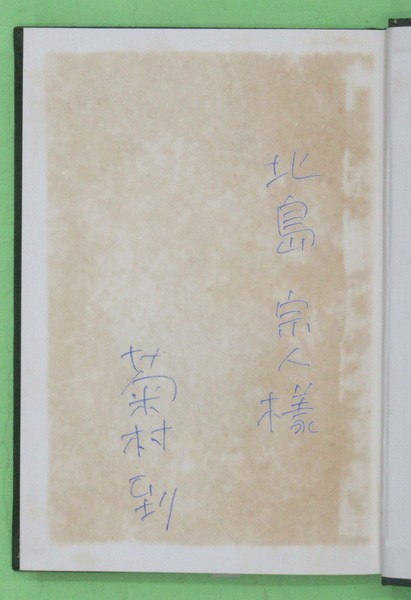 北島 宗人様
菊村 到